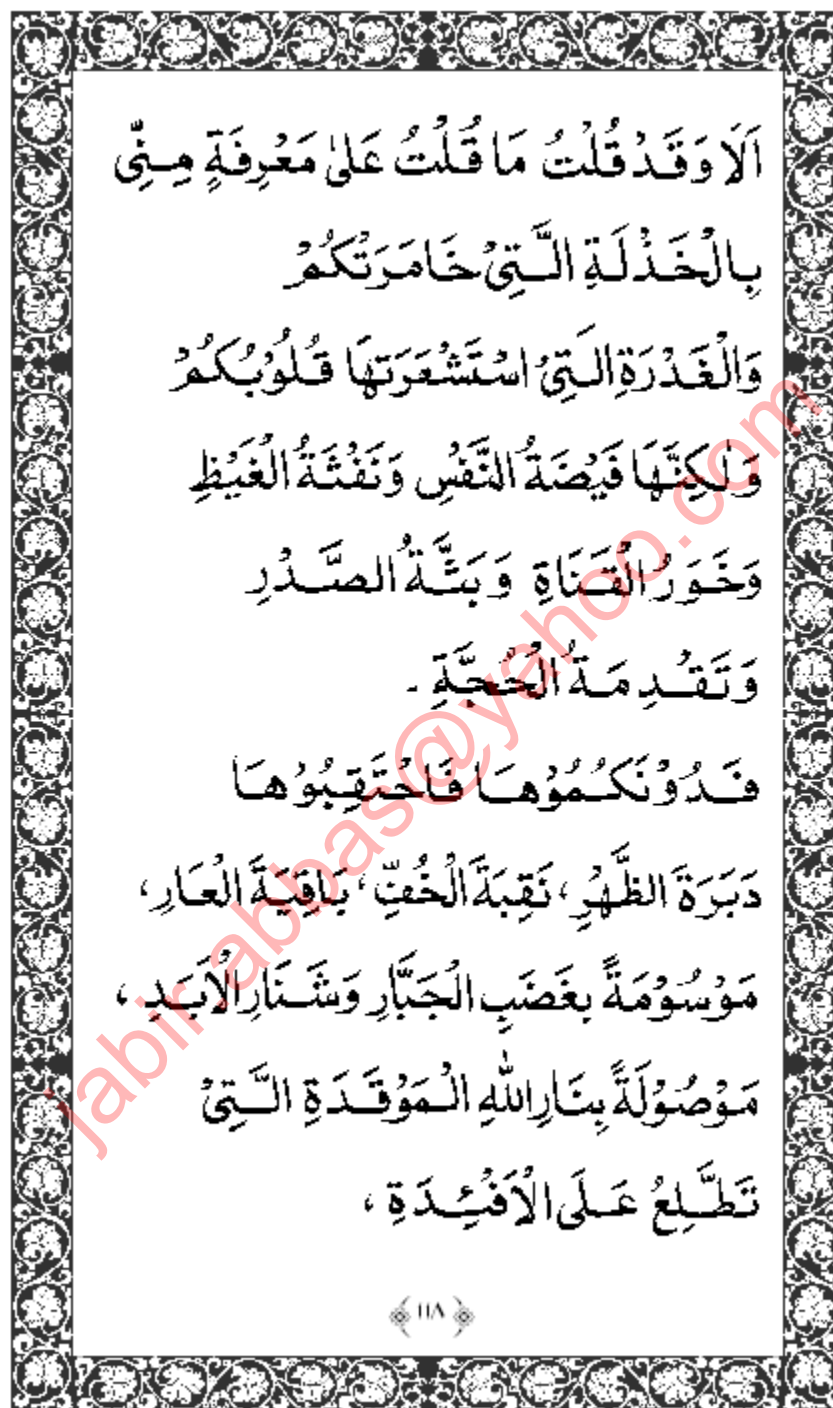 اَلَا وَقَدْ قُلْتُ مَا قُلْتُ عَلىٰ مَعْرِفَةٍ مِنِّى
بِالْخَذْلَةِ الَّتِىْ خَامَرَتْكُمْ
وَالْغَدْرَةِ الَّتِىْ اسْتَشْعَرَتْهَا قُلُوْبُكُمْ
وَلٰكِنَّهَا فَيْضَةُ النَّفْسِ وَنَفْثَةُ الْغَيْظِ
وَخَوَرُ الْقَنَاةِ وَبَثَّةُ الصَّدْرِ
وَتَقْدِمَةُ الْحُجَّةِ ـ
فَدُوْنَكُمُوْهَا فَاحْتَقِبُوْهَا
دَبَرَةَ الظَّهْرِ، نَقِبَةَ الْخُفِّ، بَاقِيَةَ الْعَارِ،
مَوْسُوْمَةً بِغَضَبِ الْجَبَّارِ وَشَنَارِ الْاَبَدِ،
مَوْصُوْلَةً بِنَارِ اللهِ الْمَوْقَدَةِ الَّتِىْ
تَطَّلِعُ عَلَى الْاَفْئِدَةِ،
١١٨
jabir.abbas@yahoo.com